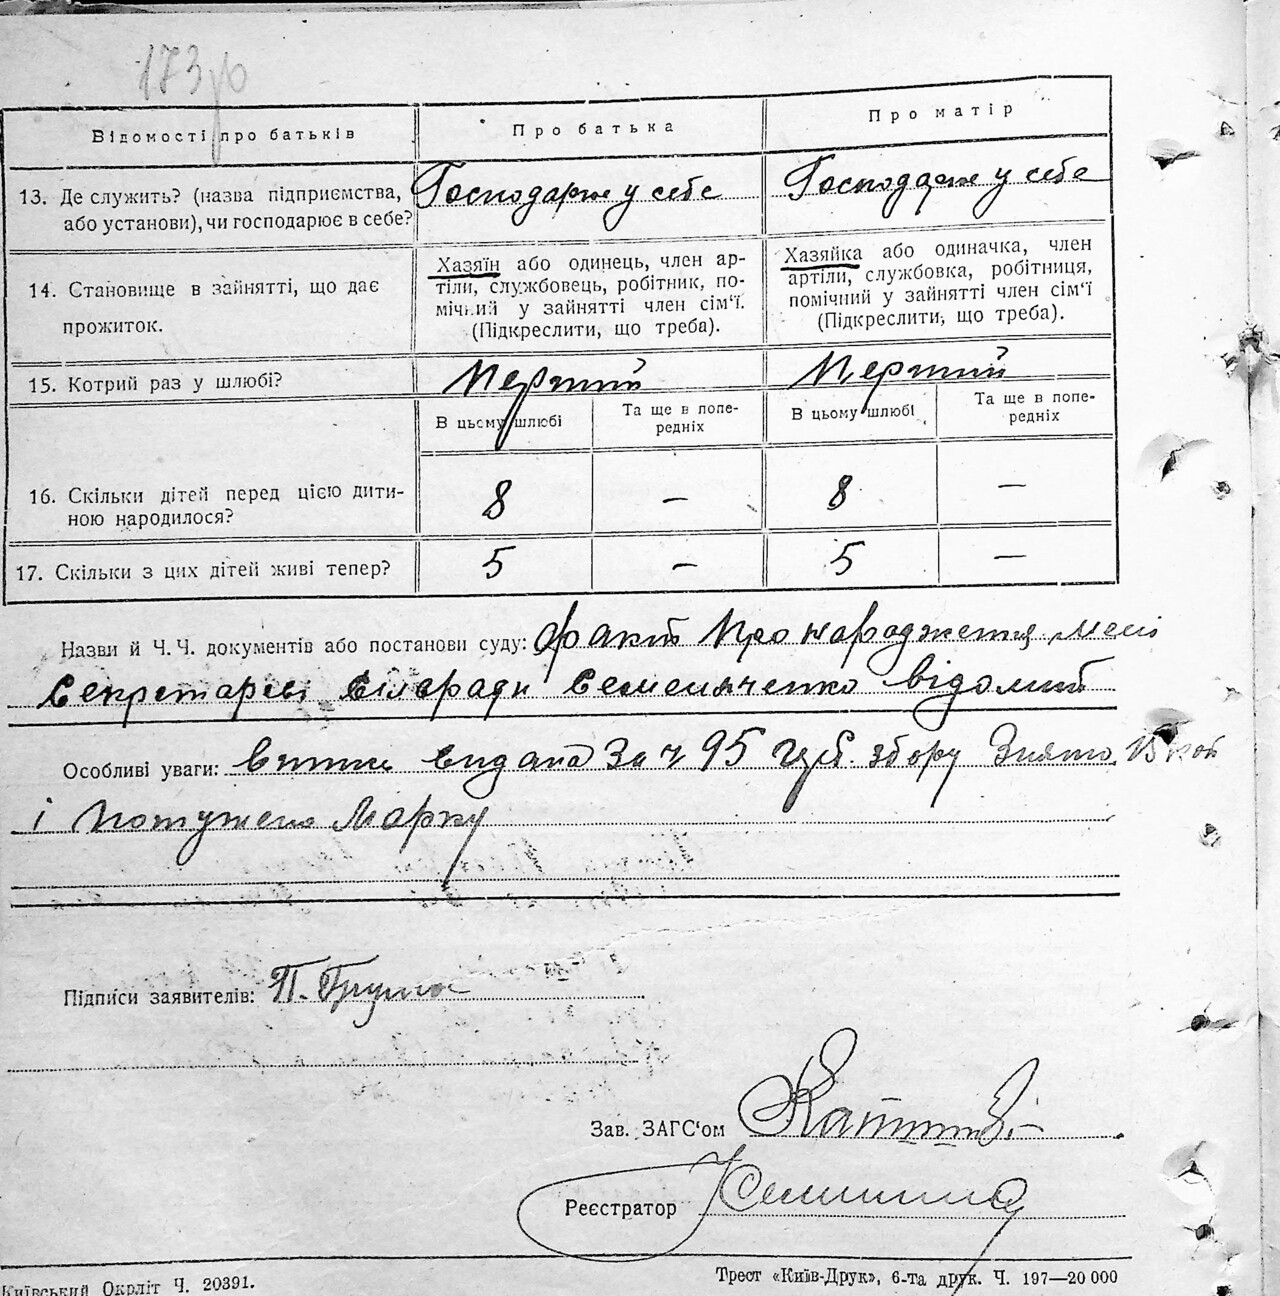 173
Відомості про батьків
Про батька
Про матір
13. Де служить? (назва підприємства, або установи), чи господарює в себе?
Господарює у себе
Господарює у себе
14. Становище в зайнятті, що дає прожиток.
Хазяїн або одинець, член ар-
тіли, службовець, робітник, по-
мічний у зайнятті член сім'ї.
(Підкреслити, що треба).
Хазяйка або одиначка, член
артіли, службовка, робітниця,
помічний у зайнятті член сім'ї
(Підкреслити, що треба).
15. Котрий раз у шлюбі?
Перший
Перший
В цьому шлюбі
Та ще в попе-
редніх
В цьому шлюбі
Та ще в попе-
редніх
16. Скільки дітей перед цією дити-
ною народилося?
8 — 8 —
17. Скільки з цих дітей живі тепер?
5 — 5 —
Назви й Ч. Ч. документів або постанови суду: Факт про народження мені
секретареві сільради Семеняченко відомий
Особливі уваги: витяг видана за ч 95 збору знято 15 коп
і погашено марку
Підписи заявителів: П.
Зав. ЗАГС'ом
Реєстратор
Київський Окрліт Ч. 20391.
Трест «Київ-Друк», 6-та друк. Ч. 197—20 000